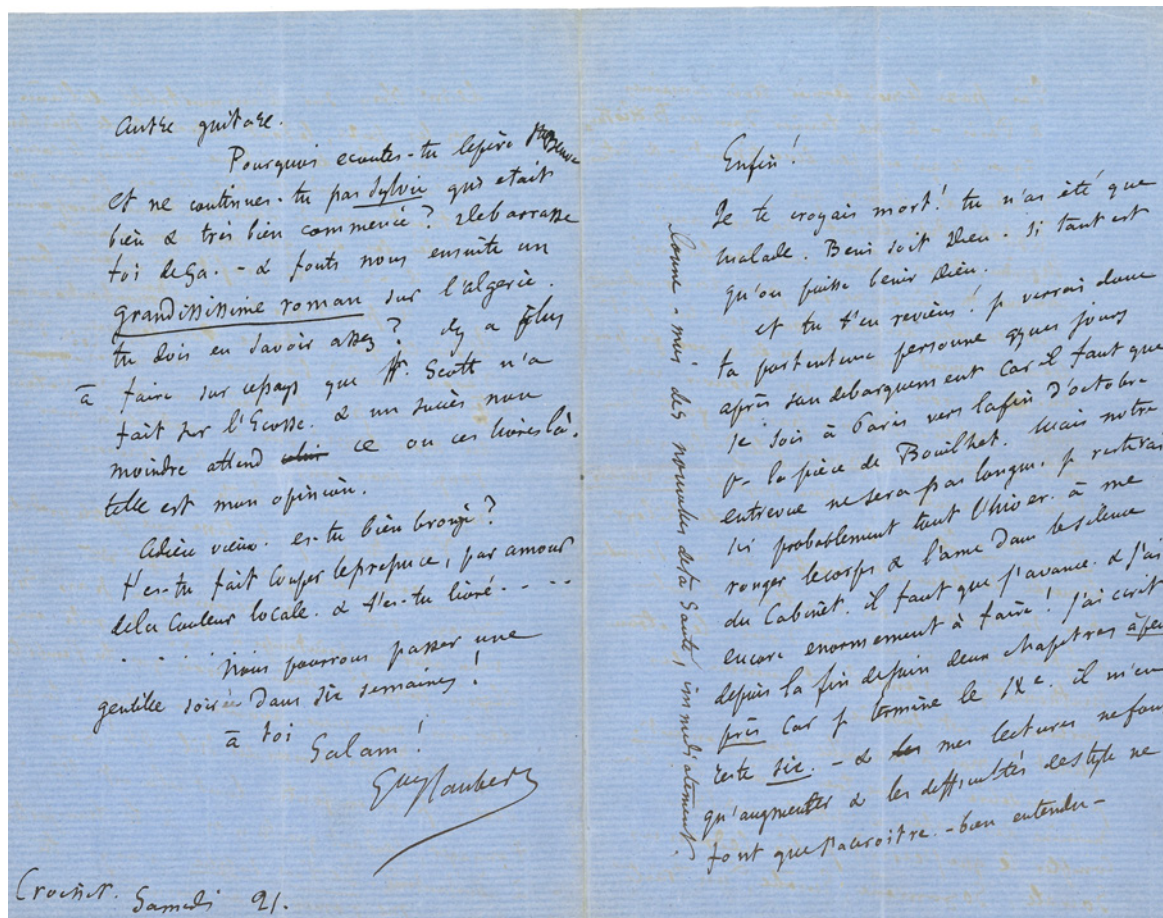 Autre guitare.
Pourquoi ecoutes-tu le père Ste Beuve
et ne continues-tu pas Sylvie qui etait
bien & tres bien commencé? Debarrasse
toi de ça. - & fouts nous ensuite un
grandissisime roman sur l'algerie.
tu dois en savoir assez? il y a plus
à faire sur ce pays que W. Scott n'a
fait sur l'Ecosse. & un succès non
moindre attend ce ou ces livres là.
telle est mon opinion.
Adieu vieux. es-tu bien bronzé?
t'es-tu fait couper le prepuce, par amour
de la couleur locale. & t'es-tu livré - - -
. . . . . Nous pourrons passer une
gentille soirée dans six semaines!
à toi
Salam!
Gve Flaubert
Croisset. Samedi 21.
Enfin!
Je te croyais mort! tu n'as été que
malade. Beni soit Dieu. si tant est
qu'on puisse benir Dieu.
et tu t'en reviens! je verrai donc
ta portenteuse personne qques jours
après son debarquement car il faut que
je sois à Paris vers la fin d'octobre
pr la pièce de Bouilhet. Mais notre
entrevue ne sera pas longue. je resterai
ici probablement tout l'hiver à me
ronger le corps & l'ame dans le silence
du Cabinet. il faut que j'avance. & j'ai
encore enormement à faire! j'ai ecrit
depuis la fin de juin deux chapitres à peu
près car je termine le IXe. il m'en
reste six. - & mes lectures ne font
qu'augmenter & les difficultés de style ne
font que s'accroitre. - bien entendu -
donne-moi des nouvelles de ta Santé, immediatement.